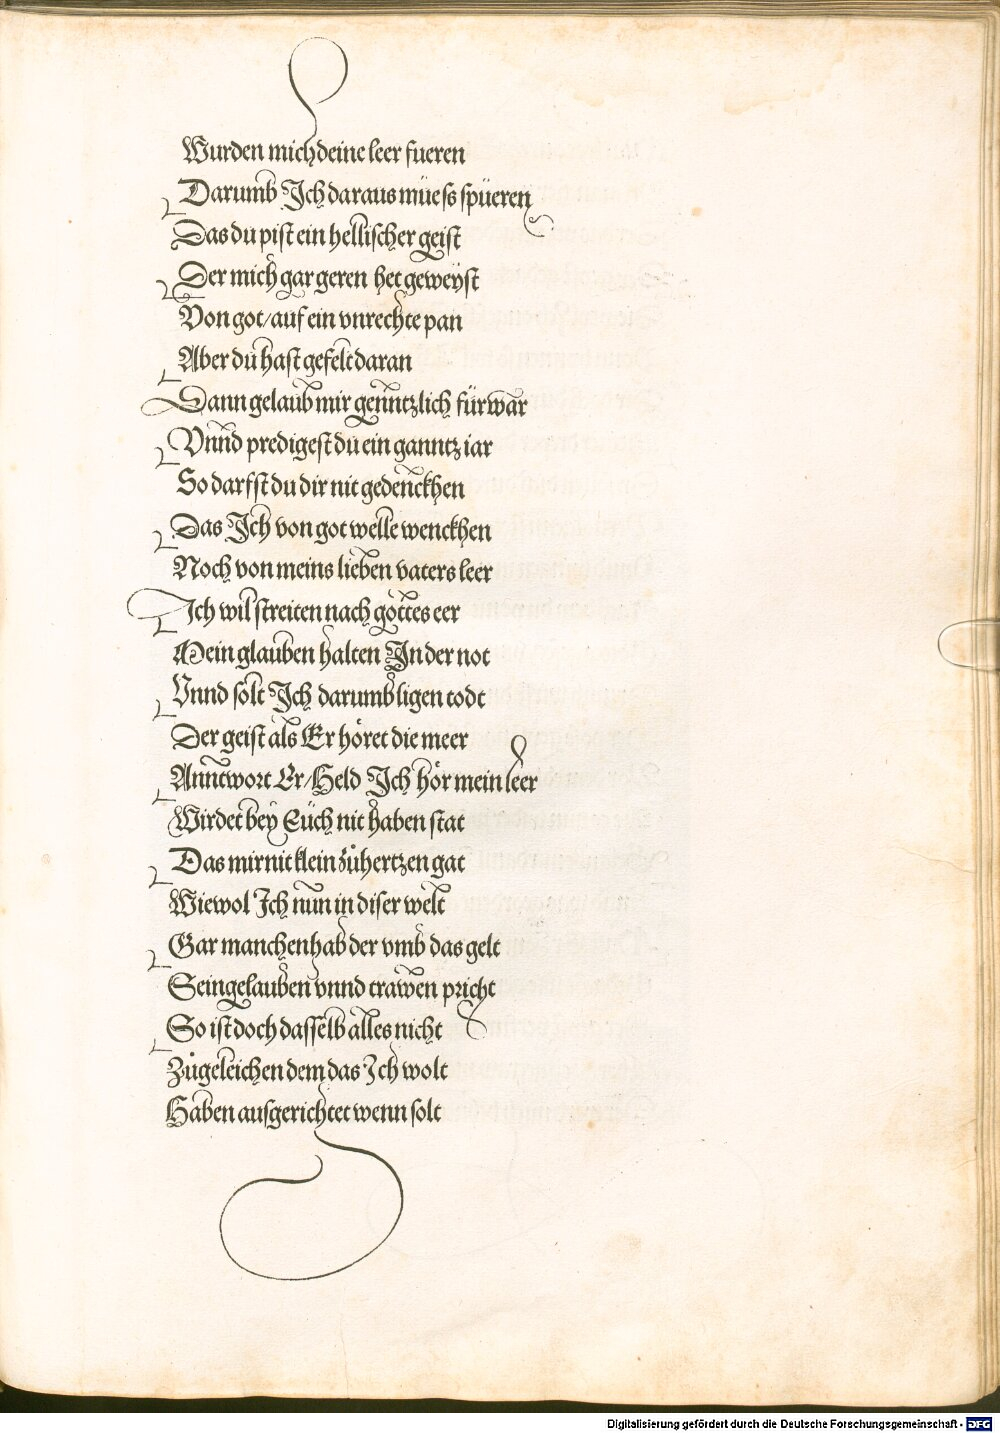 Wurden mich deine leer fueren
Darumb Ich daraus müess spüeren
Das du pist ein hellischer geist
Der mich gar geren het geweyst
Von got/auf ein vnrechte pan
Aber du hast gefelt daran
Dann gelaub mir genntzlich fürwar
Vnnd predigest du ein ganntz iar
So darfst du dir nit gedenckhen
Das Ich von got welle wenckhen
Noch von meins lieben vaters leer
Ich wil streiten nach gottes eer
Mein glauben halten In der not
Vnnd solt Ich darumb ligen todt
Der geist als Er höret die meer
Anntwort Er/Held Ich hör mein leer
Wirdet bey Eüch nit haben stat
Das mir nit klein zůhertzen gat
Wiewol Ich nun in diser welt
Gar manchen hab der vmb das gelt
Sein gelauben vnnd trawen pricht
So ist doch dasselb alles nicht
Zůgeleichen dem das Ich wolt
Haben ausgerichtet wenn solt
Digitalisierung gefördert durch die Deutsche Forschungsgemeinschaft - DFG